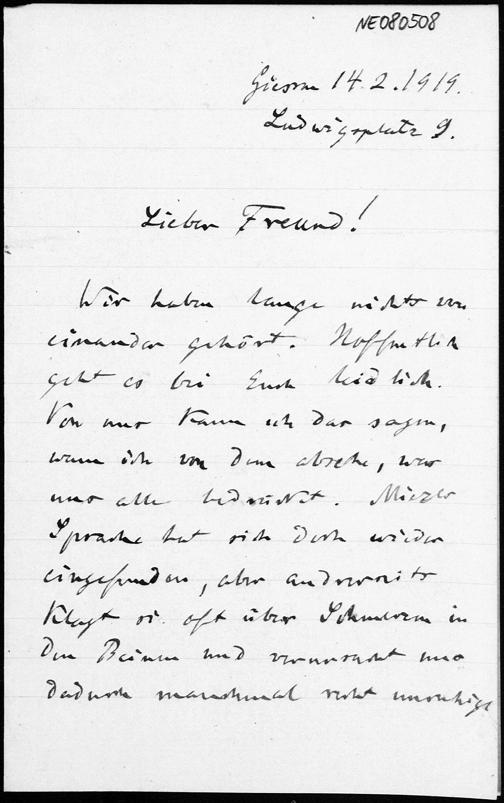 NE080508
Giessen 14.2.1919.
Ludwigsplatz 9.
Lieber Freund!
Wir haben lange nichts von
einander gehört. Hoffentlich
geht es bei Euch leidlich.
Von uns kann ich das sagen,
wenn ich von dem absehe, was
uns alle bedrückt. Miezes
Sprache hat sich doch wieder
eingefunden, aber andrerseits
klagt sie oft über Schmerzen in
den Beinen und verursacht uns
dadurch manchmal recht unruhige